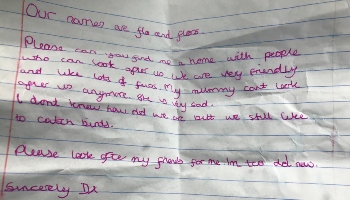 Our names are flo and floss.
Please can you find me a home with people
who can look after us. We are very friendly
and like lots of fuss. My mummy cant look
after us anymore. She is very sad.
I dont know how old we are but we still like
to catch birds.
Please look after my friends for me. Im too old now.
Sincerely